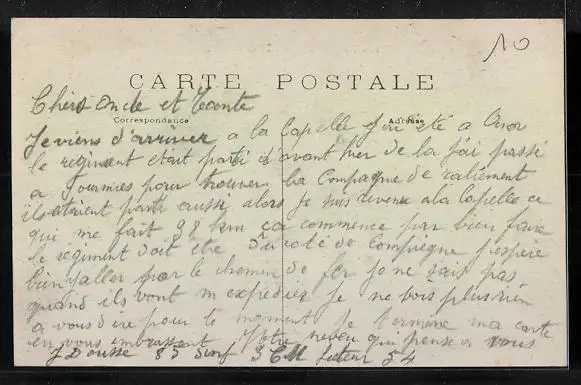 10
CARTE POSTALE
Correspondance
Adresse
Chers Oncle et Tante
Je viens d'arriver a la Capelle J'ai été a
le regiment etait parti d'avant hier de la j'ai passé
a Fourmies pour trouver la Compagnie de raliement
ils etaient partis aussi alors Je suis revenu a la Capelle ce
qui me fait 98 km ça commence par bien faire
le régiment doit être du coté de Compiegne j'espère
bien y aller par le chemin de fer je ne sais pas
quand ils vont m'expedier Je ne vois plus rien
a vous dire pour le moment Je termine ma carte
en vous embrassant Votre neveu qui pense a vous
J Dousse 85 3 CM 54